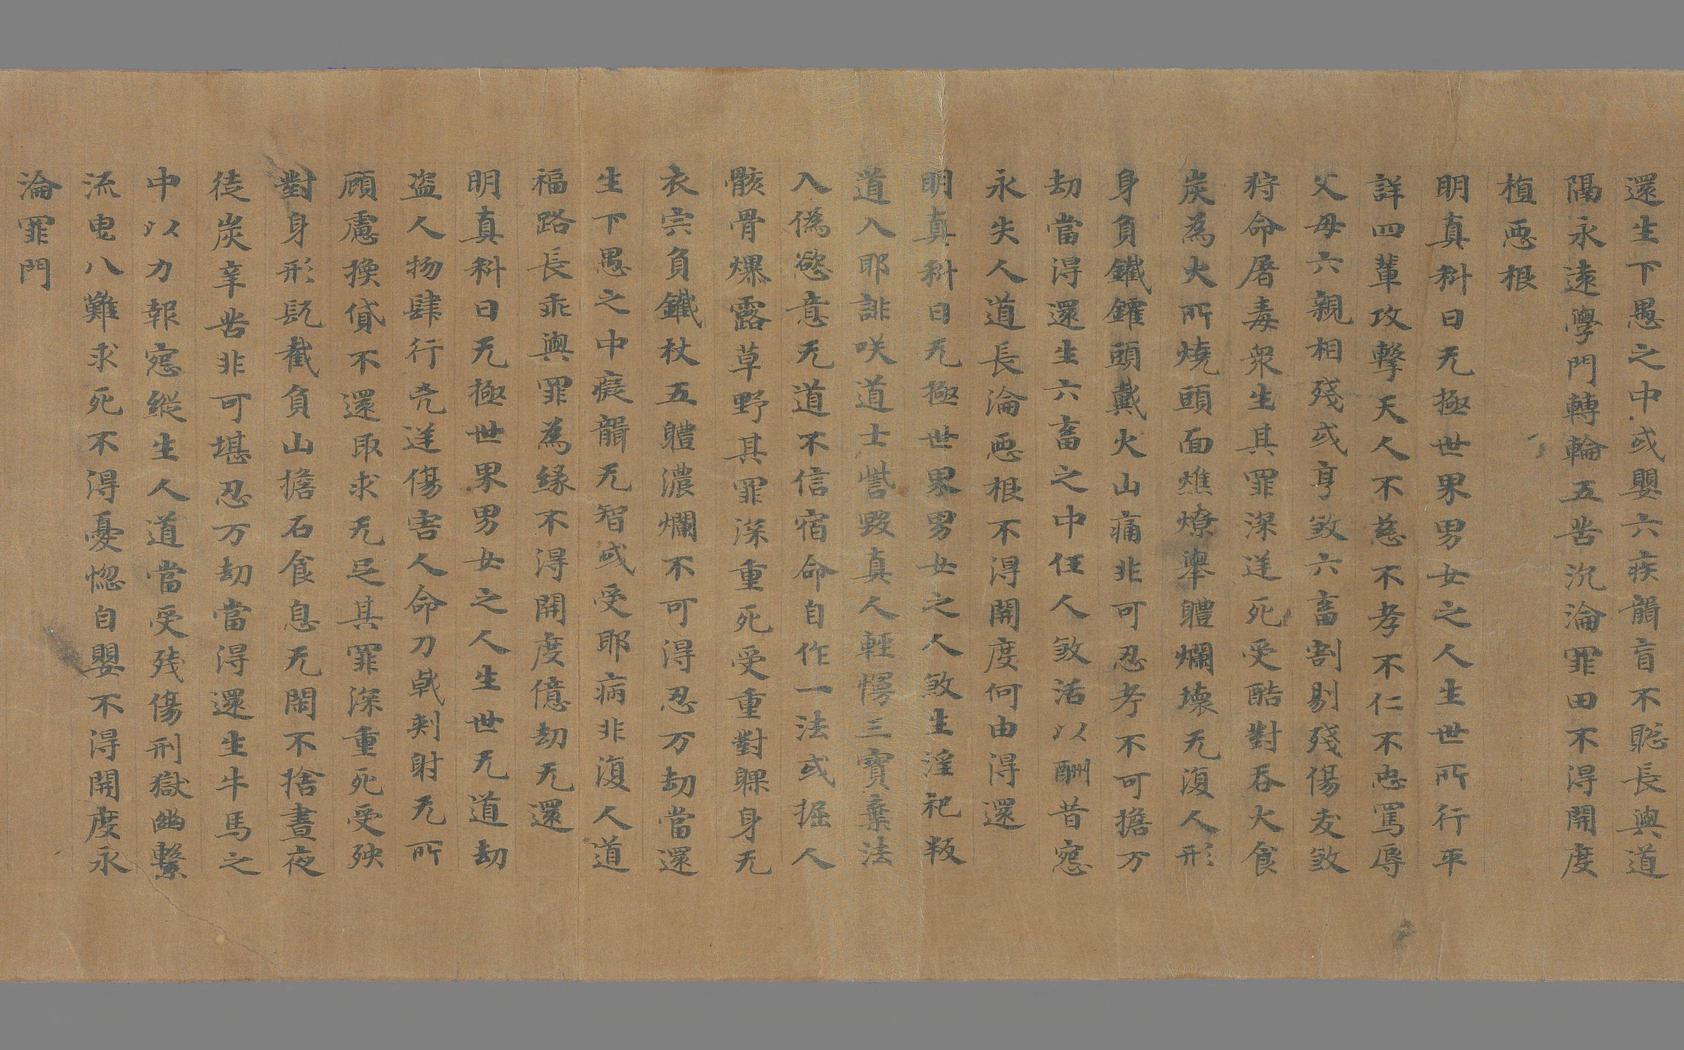 還生下愚之中或嬰六疾聾盲不聡長與道
隔永遠學門轉輪五苦沉淪罪田不得開度
植惡根
明真科曰无極世界男女之人生世所行平
詳四輩攻擊天人不慈不孝不仁不忠罵辱
父母六親相殘或烹煞六畜割剔殘傷友煞
狩命屠毒衆生其罪深逆死受酷對吞火食
炭為火所燒頭面燋燎舉體爛壞无復人形
身負鐵鑊頭戴火山痛非可忍考不可擔万
劫當得還生六畜之中任人煞活以酬昔𡨚
永失人道長淪惡根不得開度何由得還
明真科曰无極世界男女之人煞生淫祀叛
道入耶誹咲道士訾毀真人輕慢三寶棄法
入偽慾意无道不信宿命自作一法或掘人
骸骨爆露草野其罪深重死受重對躶身无
衣宍負鐵杖五體濃爛不可得忍万劫當還
生下愚之中癡聾无智或受耶病非復人道
福路長乖與罪為緣不得開度億劫无還
明真科曰无極世界男女之人生世无道劫
盜人物肆行㐫逆傷害人命刀戟刾射无所
顧慮換貸不還取求无足其罪深重死受殃
對身形髡截負山擔石食息无閑不捨晝夜
徒炭辛苦非可堪忍万劫當得還生牛馬之
中以力報𡨚縱生人道當受殘傷刑獄幽繫
流曳八難求死不得憂惚自嬰不得開度永
淪罪門